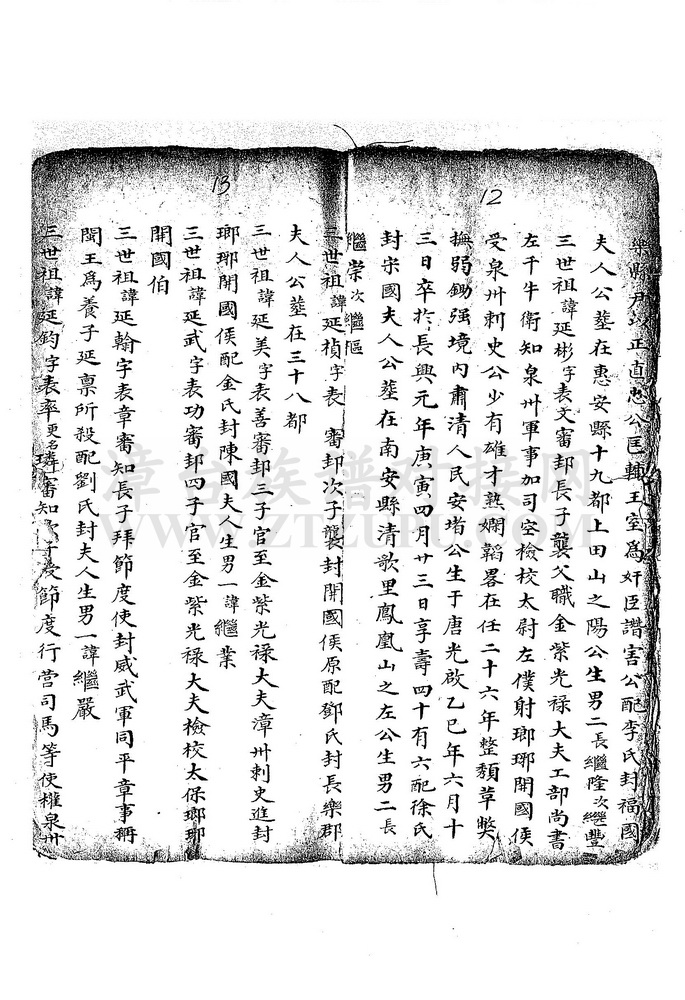 12
樂縣尹以正直忠公匡輔王室爲奸臣譖害公配李氏封福國
夫人公塟在惠安縣十九都上田山之陽公生男二長繼隆次繼豐
三世祖諱延彬字表文審邽長子襲父職金紫光祿大夫工部尚書
左千牛衛知泉州軍事加司空檢校太尉左僕射瑯琊開國侯
受泉州刺史公少有雄才熟嫻韜畧在任二十六年整頽草獘
撫弱鋤强境内肅清人民安堵公生于唐光啟乙巳年六月十
三日卒於長興元年庚寅四月廿三日享壽四十有六配徐氏
封宋國夫人公塟在南安縣清歌里鳳凰山之左公生男二長
繼崇次繼樞
13
三世祖諱延禎字表 審邽次子襲封開國侯原配鄧氏封長樂郡
夫人公塟在三十八都
三世祖諱延美字表善審邽三子官至金紫光禄大夫漳州刺史進封
瑯琊開國侯配金氏封陳國夫人生男一諱繼業
三世祖諱延武字表功審邽四子官至金紫光禄大夫檢校太保瑯琊
開國伯
三世祖諱延翰字表章審知長子拜節度使封威武軍同平章事稱
閩王爲養子延禀所殺配劉氏封夫人生男一諱繼嚴
三世祖諱延鈞字表率更名璘審知次子受節度行營司馬等使權泉州
漳台族谱对接网
WWW.ZTZUPU.COM